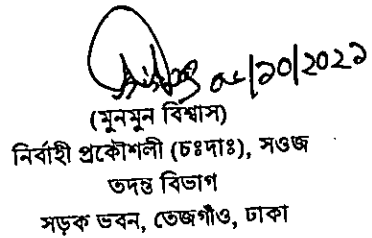 /১০/২০২১
(মুনমুন বিশ্বাস)
নির্বাহী প্রকৌশলী (চঃদাঃ), সওজ
তদন্ত বিভাগ
সড়ক ভবন, তেজগাঁও, ঢাকা